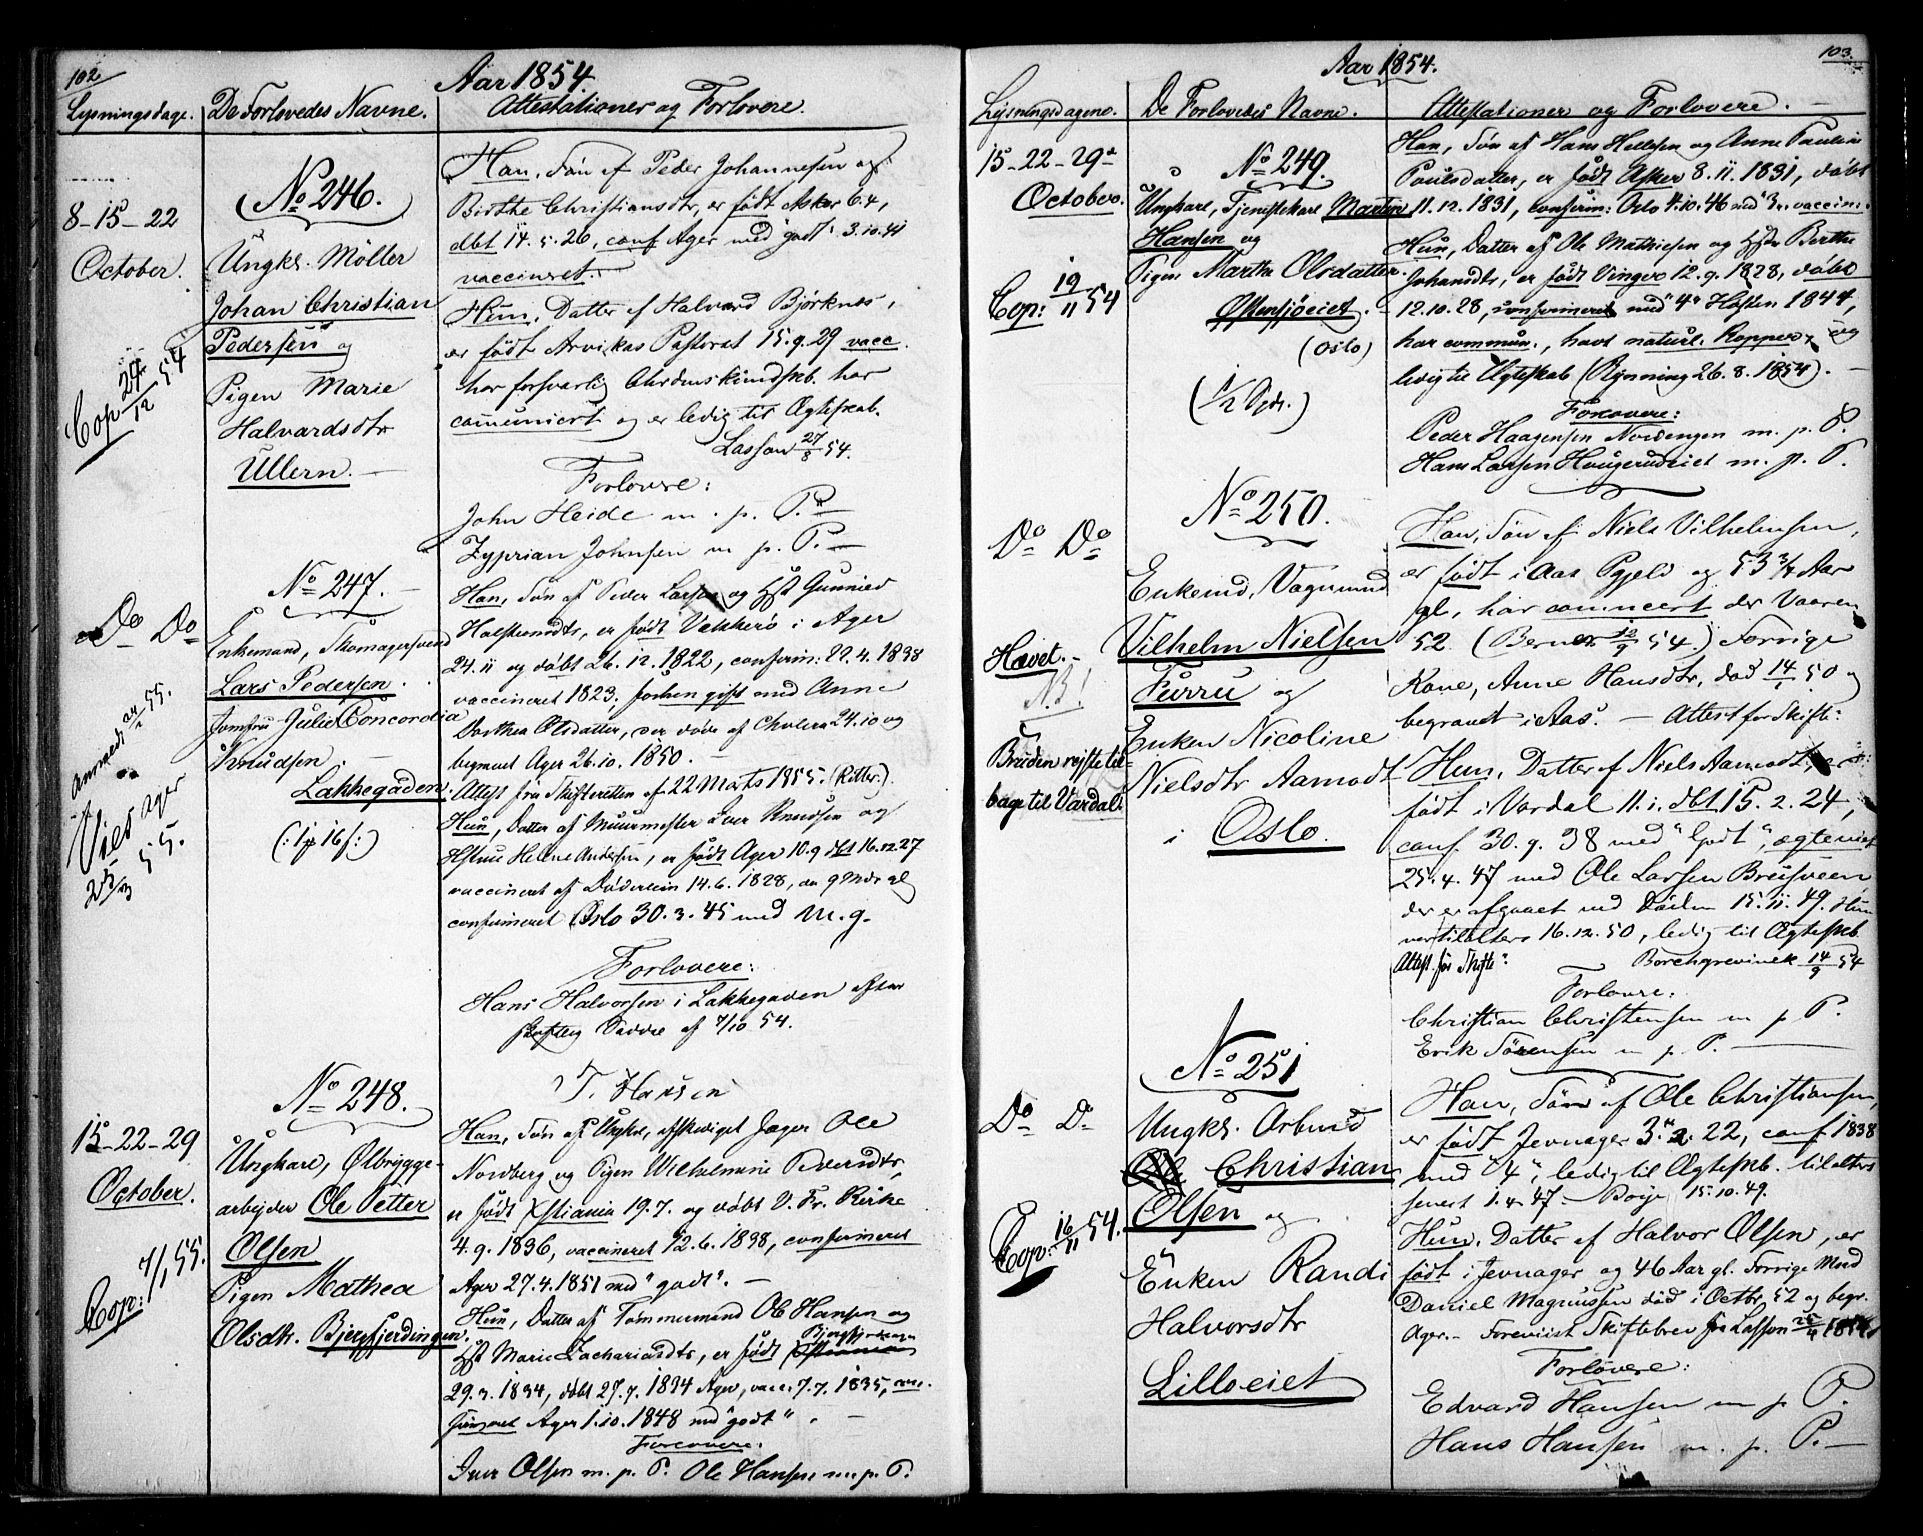 102
Aar 1854.
Lysningsdage. De Forlovedes Navne. Attestationer og Forlovere.
8-15-22
October.
Cop 24/12 54
No 246.
Ungkr. Möller
Johan Christian
Pedersen og
Pigen Marie
Halvardsdtr
Ullern.
Han, Søn af Peder Johannesen og
Birthe Christiansdtr, er født Asker 6.4,
dbt 14.5.26, conf Ager med godt 3.10.41
vaccineret.
Hun, Datter af Halvard Björknes,
er født Arvikas Pastorat 15.9.29 vacc.
har forsvarlig Chrdmskundskb. har
communicert og er ledig til Ægteskab.
Lasson 27/8 54.
Forlovere:
John Heide m. p. P.
Zyprian Johnsen m p. P.
Do Do
Vies Ager
23/3 55.
No 247.
Enkemand, Skomagersvend
Lars Pedersen.
Jomfru Julie Concordia
Knudsen
Lakkegaden.
(: 1 16 f:)
Han, Søn af Peder Larsen og Hst Gunnild
Halstensdtr, er født Vækkerø i Ager
24.11 og døbt 26.12.1822, conferin: 22.4.1838
vaccineret 1823. forhen gift med Anne
Dorthea Olsdatter, der døde af Cholera 24.10 og
begravet Ager 26.10.1850.
Attest fra Skifteretten af 22 Marts 1855. (Ritter.)
Hun, Datter af Muurmester Iver Knudsen og
Hstru Helene Andersen, er født Ager 10.9 dbt 16.12.27
vaccineret af Döderlein 14.6.1828, da 9 Mdr gl
confirmeret Oslo 30.3.45 med M.g.
Forlovere:
Hans Halvorsen i Lakkegaden efter
skriftlig Vidne af 7/10 54.
T. Hansen
15-22-29
October.
Cop: 7/1 55.
No 248.
Ungkarl, Ølbrygge-
arbejder Ole Petter
Olsen
Pigen Mathea
Olsdtr. Bjergfjerdingen.
Han, Søn af Ungkr, afskediget Jæger Ole
Nordberg og Pigen Wilhelmine Pedersdtr,
er født Xstiania 19.7. og døbt V. Fr. Kirke
4.9.1836, vaccineret 12.6.1838, confirmeret
Ager 27.4.1851 med "godt".
Hun, Datter af Tømmermand Ole Hansen og
Hst Marie Zachariasdtr, er født Bjergfjerdingen
29.3.1834, døbt 27.7.1834 Ager, vacc. 7.7.1835, con-
firmeret Ager 1.10.1848 med "godt".
Forlovere:
Iver Olsen m. p. P. Ole Hansen m. p. P.
103.
Aar 1854.
Lysningsdagene. De Forlovedes Navne. Attestationer og Forlovere.
15-22-29
October.
Cop: 19/11 54
No 249.
Ungkarl, Tjenestekarl Martin
Hansen og
Pigen Martha Olsdatter.
Østensjøeiet.
(Oslo)
(1/2 Spdr.)
Han, Søn af Hans Hellesen og Anne Pauline
Poulsdatter, er født Asker 8.11.1831, døbt
11.12.1831, conferin: Oslo 4.10.46 med 3. vaccin:.
Hun, Datter af Ole Mathiesen og Hst Berthe
Johansdtr, er født Vinger 12.9.1828, døbt
12.10.28, confirmeret med "4" Høsten 1844,
har commun., havt naturl. Kopper, og
ledig til Ægteskab (Rynning 26.8.1854).
Forlovere:
Peder Haagensen Nordengen m. p. P.
Hans Larsen Haugerudeiet m. p. P.
Do Do
Hævet.
N.B!
Bruden rejste til-
bage til Vardal.
No 250.
Enkemd, Vognmand
Vilhelm Nielsen
Furru og
Enken Nicoline
Nielsdtr Aamodt
i Oslo.
Han, Søn af Niels Vilhelmsen,
er født i Aas Pgjeld og 53 3/4 Aar
gl, har comunicert der Vaaren
52. (Berner 12/9 54.) Forrige
Kone, Anne Hansdtr, død 14/1 50 og
begravet i Aas. — Attest for Skifte:
Hun, Datter af Niels Aamodt,
født i Vardal 11.1. dbt 15.2.24,
conf 30.9.38 med "Godt", ægteviet
25.4.47 med Ole Larsen Breisveen
der er afgaaet ved Døden 15.11.49. Hun
var tilalters 16.12.50, ledig til Ægteskb.
Attest for Skifte: Borchgrevinck 14/9 54
Forlovre:
Christian Christensen m p P.
Erik Sörensen m. p. P.
Do Do
Cop: 16/11 54.
No 251
Ungkr. Arbmd
Christian
Olsen og
Enken Randi
Halvorsdtr
Lilloeiet
Han, Søn af Ole Christiansen,
er født Jevnager 3. 2. 22, conf 1838
med "4", ledig til Ægteskb. tilalters
senest 1.4.47. Boije 15.10.49.
Hun, Datter af Halvor Olsen, er
født i Jevnager og 46 Aar gl. Forrige Mand
Daniel Magnussen död i Octbr 52 og begr.
Ager. — Foreviist Skiftebrev fra Lasson 25/4 1854
Forlovere:
Edvard Hansen m p P.
Hans Hansen m. p. P.